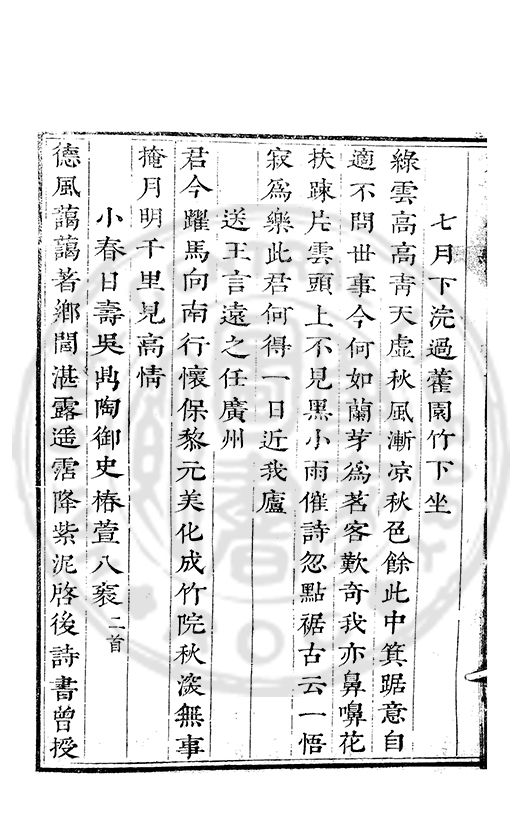 七月下浣過藿園竹下坐
綠雲高高靑天虛秋風漸凉秋色餘此中箕踞意自
適不問世事今何如蘭芽爲茗客歎奇我亦鼻嗅花
扶疎片雲頭上不見黑小雨催詩忽點裾古云一悟
寂爲樂此君何得一日近我廬
送王言遠之任廣州
君今躍馬向南行懷保黎元美化成竹院秋深無事
掩月明千里見高情
小春日壽吳鼎陶御史椿萱八袠二首
德風藹藹著鄉閭湛露遥霑降紫泥啓後詩書曾授